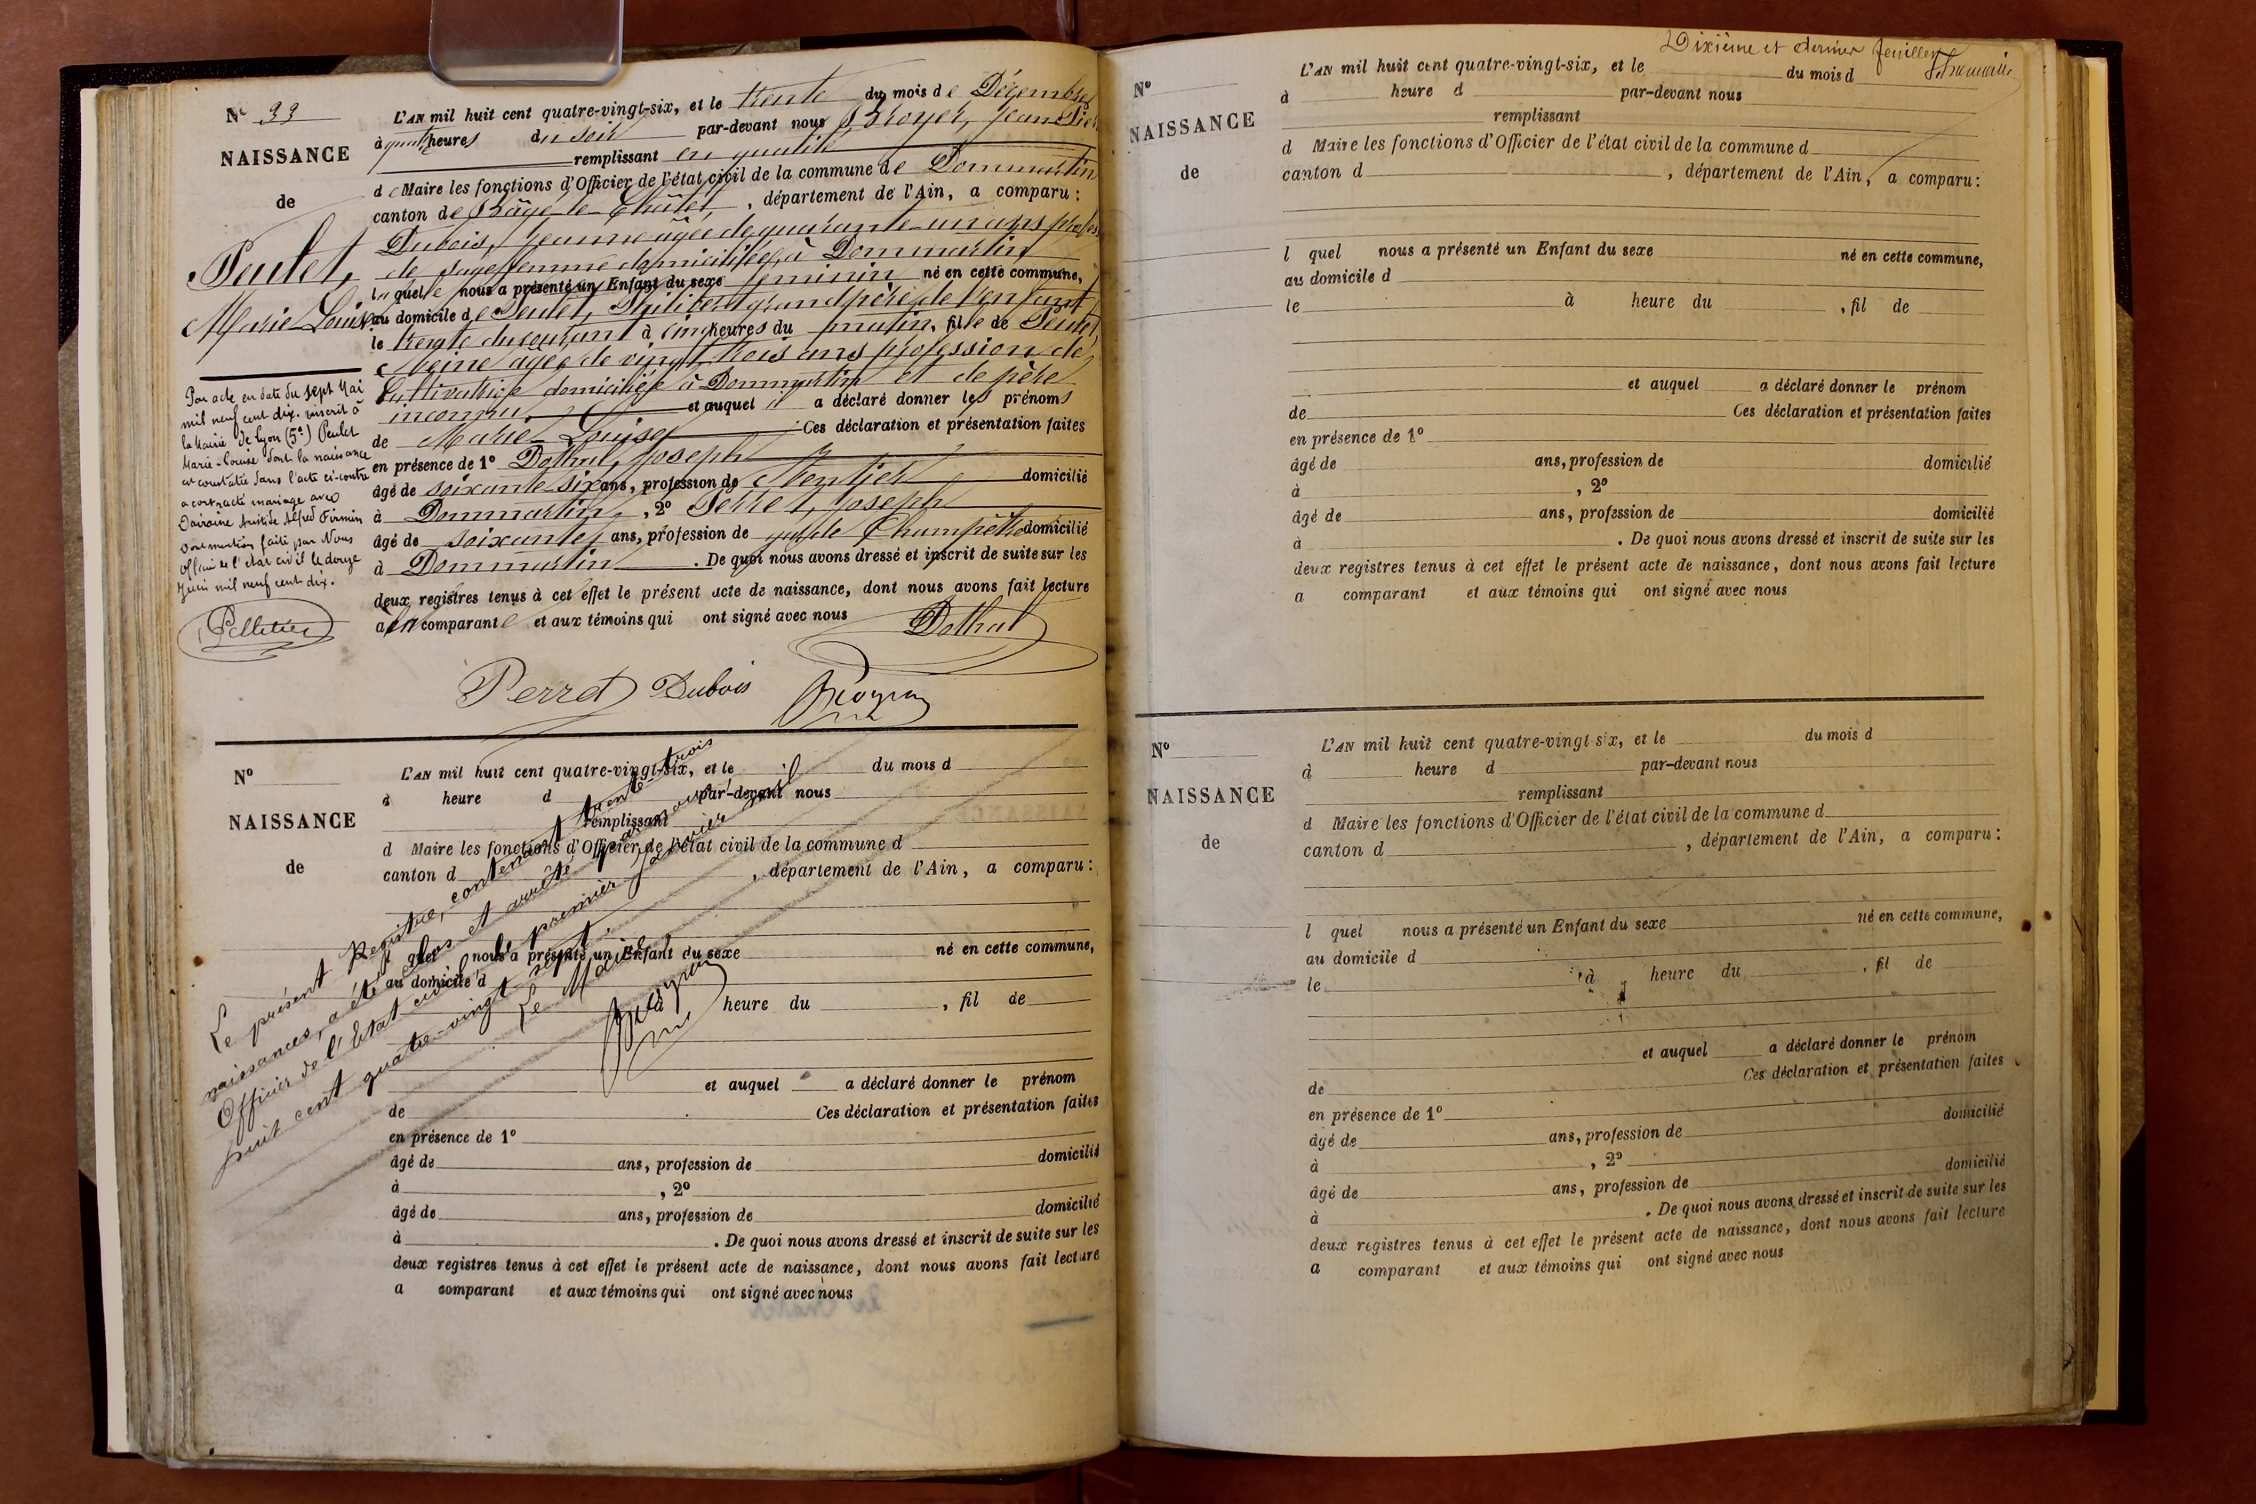 N° 33
NAISSANCE
de
Peulet,
Marie Louise
Par acte en date du sept Mai
mil neuf cent dix. inscrit à
la Mairie de Lyon (5e) Peulet
Marie-Louise dont la naissance
est constatée dans l'acte ci-contre
a contracté mariage avec
Aristide Alfred Firmin
faite par Nous
officier de l'etat civil le douze
Juin mil neuf cent dix.
Pelletier
L'AN mil huit cent quatre-vingt-six, et le trente du mois de Décembre
à quatre heures du soir par-devant nous Broyer, Jean
remplissant en qualité
de Maire les fonctions d'Officier de l'état civil de la commune de Dommartin
canton de Bâgé-le-Châtel, département de l'Ain, a comparu :
Dubois, Jeanne agée de quarante-un ans
de sage femme domiciliée à Dommartin
laquelle nous a présenté un Enfant du sexe féminin né en cette commune,
au domicile de Peulet, Philibert grand père de l'enfant
le trente du courant à cinq heures du matin, fille de Peulet,
Reine agée de vingt trois ans profession de
Cultivatrice domiciliée à Dommartin et de père
inconnu et auquel a déclaré donner les prénoms
de Marie Louise Ces déclaration et présentation faites
en présence de 1° Dothal, Joseph
âgé de soixante six ans, profession de Rentier domicilié
à Dommartin, 2° Perret, Joseph
âgé de soixante ans, profession de garde Champêtre domicilié
à Dommartin. De quoi nous avons dressé et inscrit de suite sur les
deux registres tenus à cet effet le présent acte de naissance, dont nous avons fait lecture
à la comparante et aux témoins qui ont signé avec nous
Dothal
Perret Dubois Broyer
N°
NAISSANCE
de
L'AN mil huit cent quatre-vingt-six, et le du mois d
à heure d par-devant nous
remplissant
d Maire les fonctions d'Officier de l'état civil de la commune d
canton d , département de l'Ain, a comparu :
l quel nous a présenté un Enfant du sexe né en cette commune,
au domicile d
à heure du , fil de
et auquel a déclaré donner le prénom
de Ces déclaration et présentation faites
en présence de 1°
âgé de ans, profession de domicilié
à , 2°
âgé de ans, profession de domicilié
à . De quoi nous avons dressé et inscrit de suite sur les
deux registres tenus à cet effet le présent acte de naissance, dont nous avons fait lecture
a comparant et aux témoins qui ont signé avec nous
Le présent Registre, contenant trente trois
naissances, a été clos et arrêté par nous
Officier de l'Etat civil le premier Janvier mil
huit cent quatre-vingt sept.
Le Maire
Broyer
Dixième et dernier feuillet
N°
NAISSANCE
de
L'AN mil huit cent quatre-vingt-six, et le du mois d
à heure d par-devant nous
remplissant
d Maire les fonctions d'Officier de l'état civil de la commune d
canton d , département de l'Ain, a comparu :
l quel nous a présenté un Enfant du sexe né en cette commune,
au domicile d
le à heure du , fil de
et auquel a déclaré donner le prénom
de Ces déclaration et présentation faites
en présence de 1°
âgé de ans, profession de domicilié
à , 2°
âgé de ans, profession de domicilié
à . De quoi nous avons dressé et inscrit de suite sur les
deux registres tenus à cet effet le présent acte de naissance, dont nous avons fait lecture
a comparant et aux témoins qui ont signé avec nous
N°
NAISSANCE
de
L'AN mil huit cent quatre-vingt-six, et le du mois d
à heure d par-devant nous
remplissant
d Maire les fonctions d'Officier de l'état civil de la commune d
canton d , département de l'Ain, a comparu :
l quel nous a présenté un Enfant du sexe né en cette commune,
au domicile d
le à heure du , fil de
et auquel a déclaré donner le prénom
de Ces déclaration et présentation faites
en présence de 1°
âgé de ans, profession de domicilié
à , 2°
âgé de ans, profession de domicilié
à . De quoi nous avons dressé et inscrit de suite sur les
deux registres tenus à cet effet le présent acte de naissance, dont nous avons fait lecture
a comparant et aux témoins qui ont signé avec nous